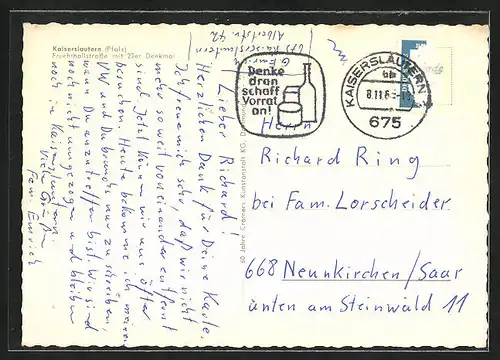 Kaiserslautern (Pfalz)
Fruchthallstraße mit 23er Denkmal
675 Kaiserslautern
Albertstr. 42
Lieber Richard!
Herzlichen Dank für Deine Karte.
Ich freue mich sehr, daß wir nicht
mehr so weit voneinander entfernt
sind. Jetzt können wir uns öfter
besuchen. Heute bekomme ich meinen
VW und Du brauchst nur zu schreiben,
wann Du anzutreffen bist. Wir sind
noch nicht umgezogen und bleiben
noch in Kaiserslautern.
Viele Grüße
Fam. Emrich
60 Jahre Cramers Kunstanstalt KG, Dortmund
Denke
dran
schaff
Vorrat
an!
KAISERSLAUTERN
675
Herrn
Richard Ring
bei Fam. Lorscheider
668 Neunkirchen/Saar
unten am Steinwald 11